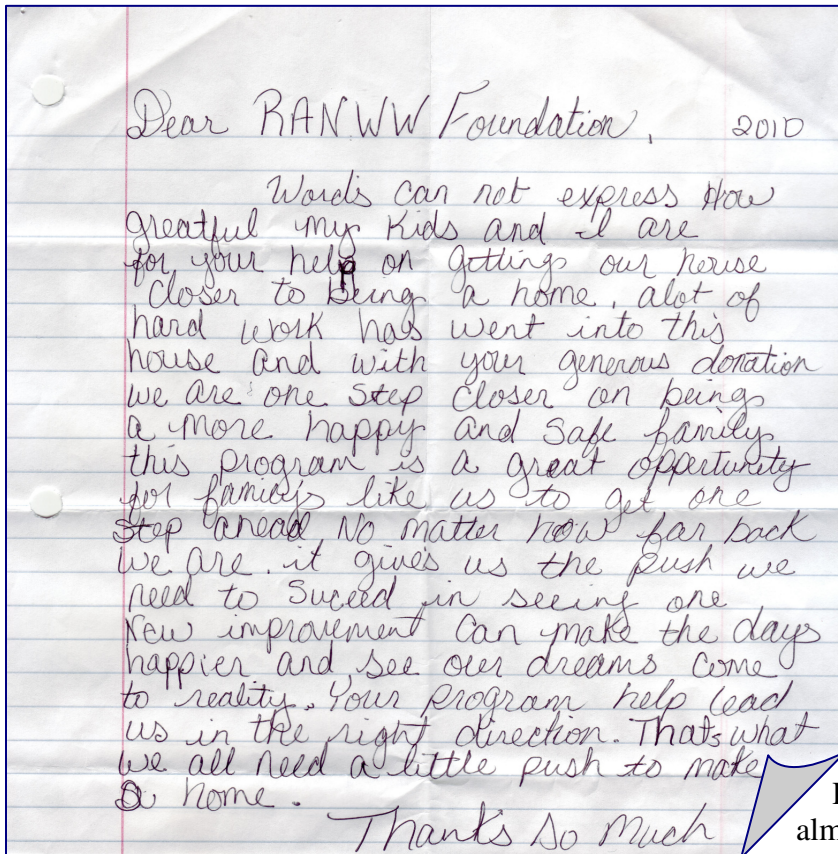 Dear RANWW Foundation, 2010
Words can not express How
greatful my Kids and I are
for your help on getting our house
closer to being a home. alot of
hard work has went into this
house and with your generous donation
we are one step closer on being
a more happy and safe family
this program is a great oppertunity
for family's like us to get one
step ahead No matter how far back
we are. it gives us the push we
need to suceed in seeing one
New improvement can make the days
happier and see our dreams come
to reality. Your program help lead
us in the right direction. That's what
we all need a little push to make
a home.
Thanks So Much
alm